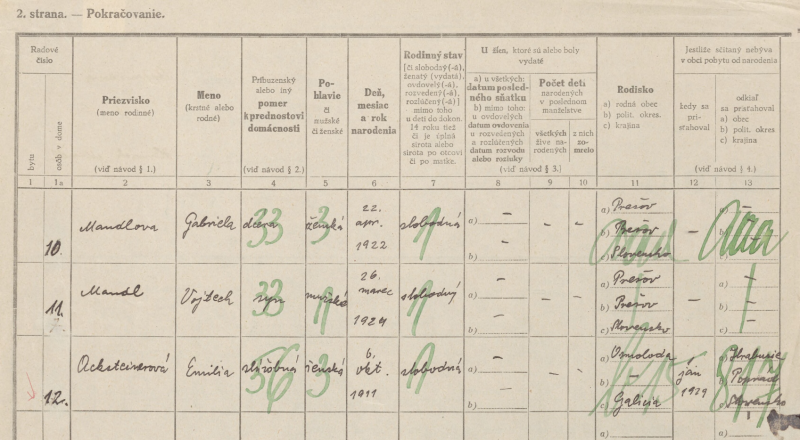 2. strana. — Pokračovanie.
Radové číslo
bytu
osôb v dome
Priezvisko
(meno rodinné)
(viď návod § 1.)
Meno
(krstné alebo
rodné)
Príbuzenský
alebo iný
pomer
k prednostovi
domácnosti
(viď návod § 2.)
Pohlavie
či
mužské
či ženské
Deň,
mesiac
a rok
narodenia
Rodinný stav
[či slobodný(-á),
ženatý (vydatá),
ovdovelý(-á),
rozvedený(-á),
rozlúčený(-á)]
mimo toho
u detí do dokon.
14 roku tiež
či je úplná
sirota alebo
sirota po otcovi
či po matke.
U žien, ktoré sú alebo boly
vydaté
a) u všetkých:
datum posledného sňatku
b) mimo toho:
u ovdovelých
datum ovdovenia
u rozvedených
a rozlúčených
datum rozvodu
alebo rozluky
Počet detí
narodených
v poslednom
manželstve
všetkých
živo narodených
z nich
zomrelo
(viď návod § 3.)
Rodisko
a) rodná obec
b) polit. okres
c) krajina
Jestliže sčítaný nebýva
v obci pobytu od narodenia
kedy sa
prisťahoval
odkiaľ
sa prisťahoval
a) obec
b) polit. okres
c) krajina
(viď návod § 4.)
1 1a 2 3 4 5 6 7 8 9 10 11 12 13
10. Mandlova Gabriela dcera ženská 22. apr. 1922 slobodná a) – b) – – – a) Prešov b) Prešov c) Slovensko –
33 3 1
11. Mandl Vojtech syn mužské 26. marec 1924 slobodný a) – b) – – – a) Prešov b) Prešov c) Slovensko –
33 1 1
12. Emilia slúžobná ženská 6. okt. 1911 slobodná a) – b) – a) Osmoloda b) – c) Galicia jan 1929 a) Hrabušice b) Poprad c) Slovensko
56 3 1
a)
a)
a)